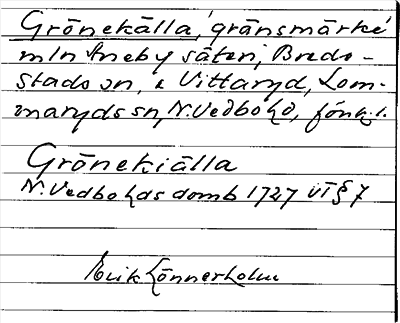 Grönekälla, gränsmärke
mln Aneby säteri, Bredestads sn, & Vittaryd, Lommaryds sn, N. Vedbo hd, Jönk. l.
Grönekiälla
N. Vedbo hds domb 1727 VT § 7
Erik Lönnerholm